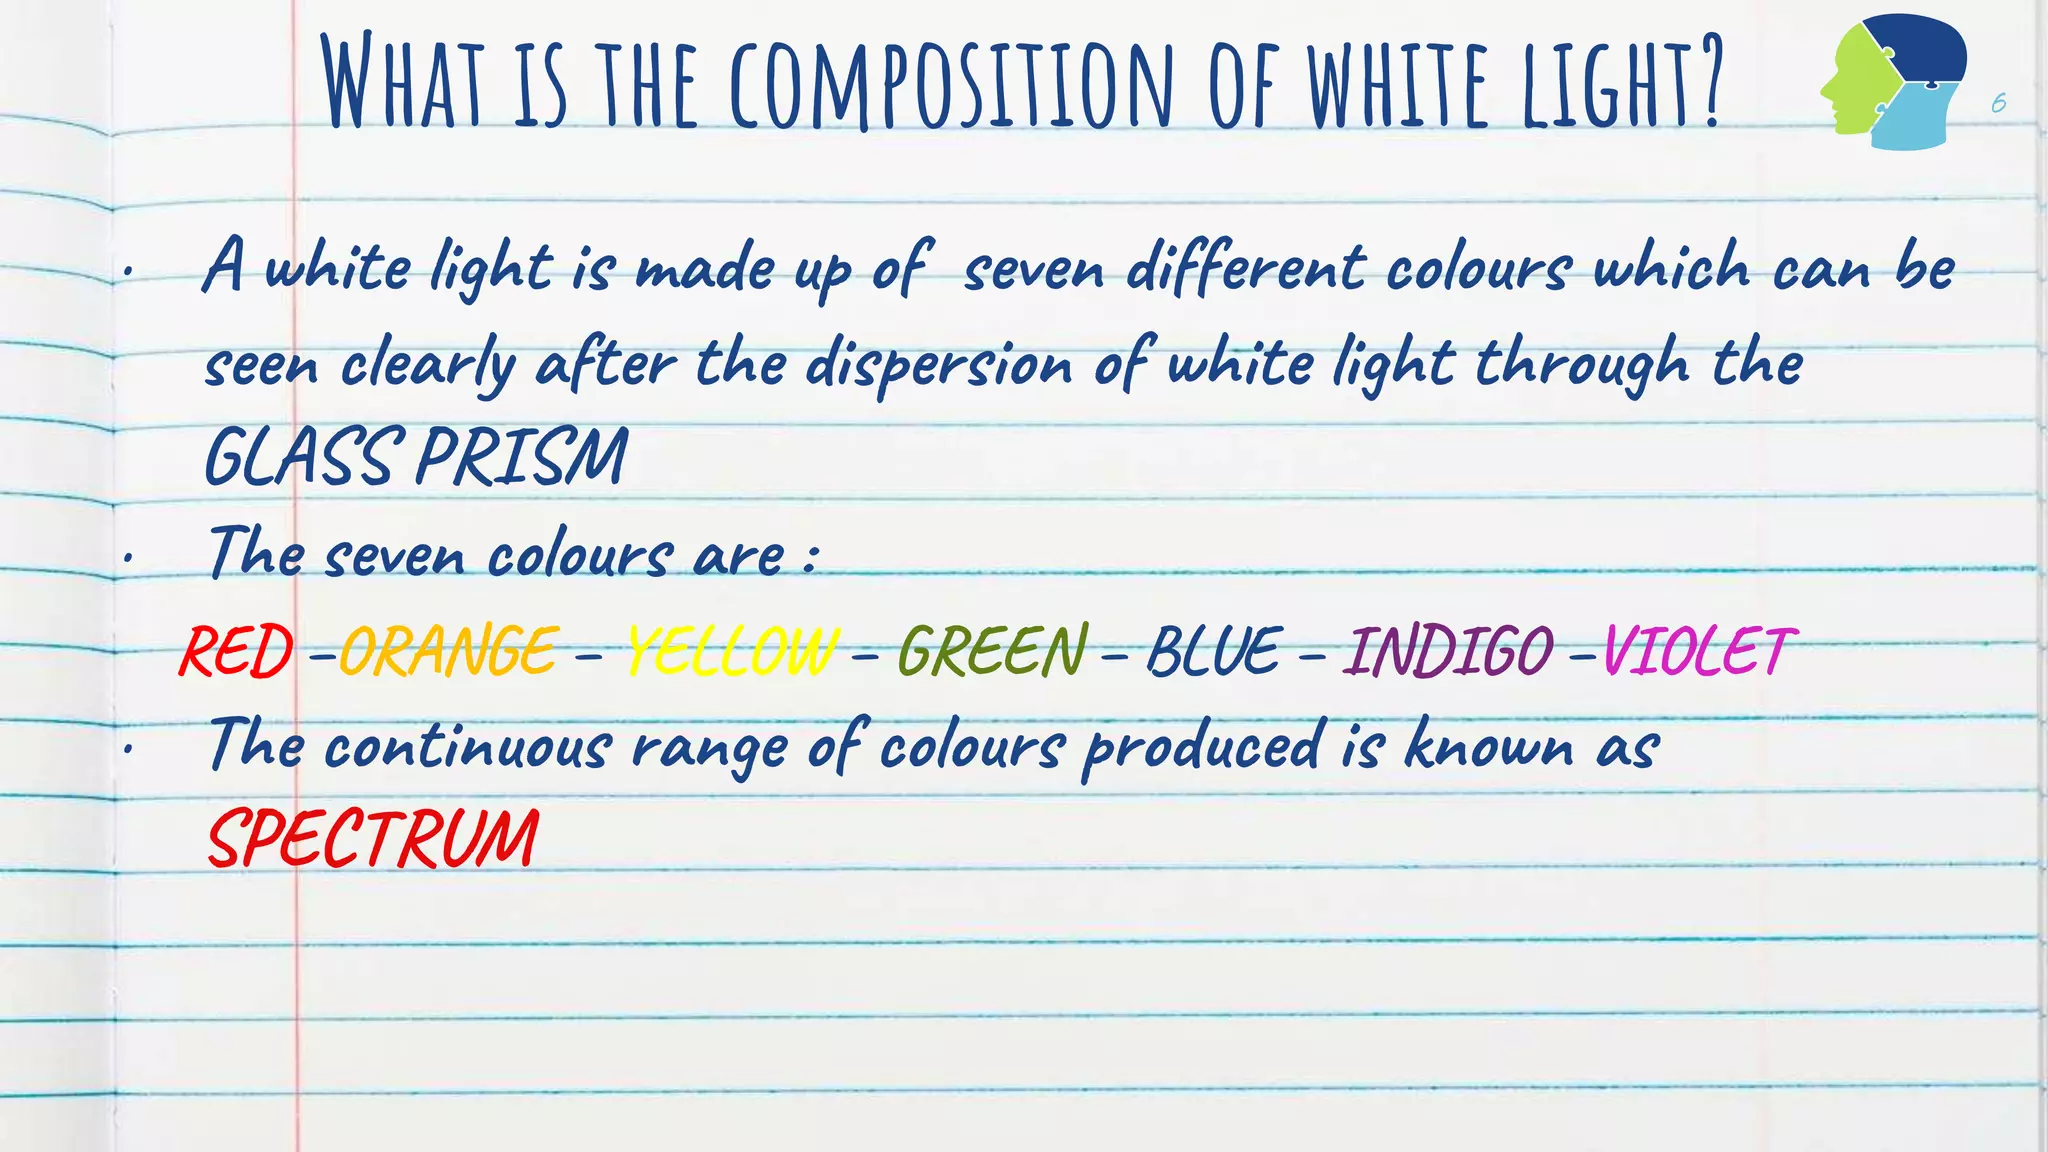 What is the composition of white light?
6
· A white light is made up of seven different colours which can be
seen clearly after the dispersion of white light through the
GLASS PRISM
· The seven colours are :
RED –ORANGE – YELLOW – GREEN – BLUE – INDIGO –VIOLET
· The continuous range of colours produced is known as
SPECTRUM